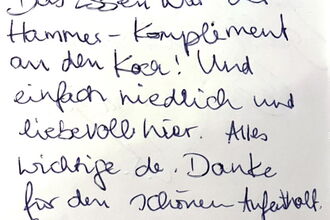 Das Essen war der
Hammer - Kompliment
an den Koch! Und
einfach niedlich und
liebevoll hier. Alles
wichtige da. Danke
für den schönen Aufenthalt.